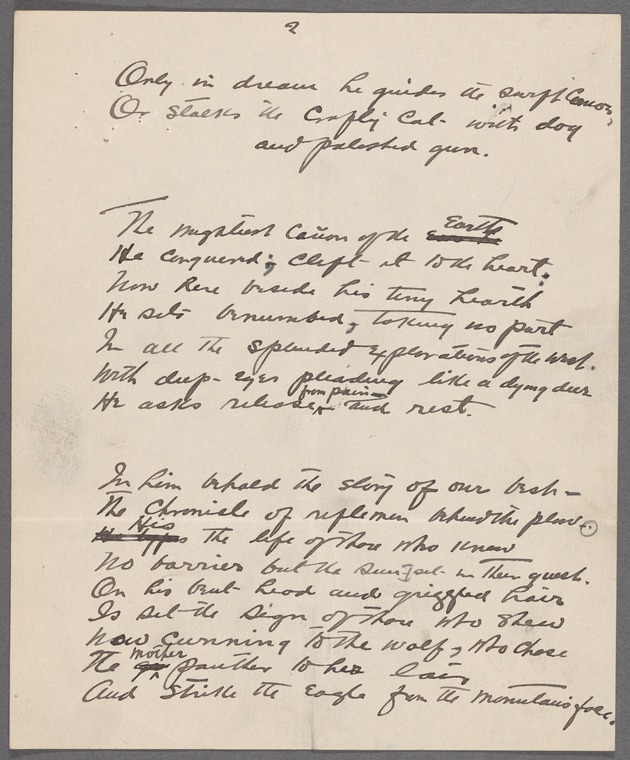 2
Only in dream he guides the swift canoe,
Or stalks the crafty cat with dog
and palsied gun.
The mightiest Cañon of the Earth
He conquered; cleft it to the heart;
Now here beside his tiny hearth
He sits benumbed, taking no part
In all the splendid explorations of the west.
With deep eyes pleading like a dying deer
He asks release from pain and rest.
In him behold the story of our best—
The Chronicle of riflemen behind the plow.
His the life of those who knew
No barrier but the sunset in their quest.
On his bent head and grizzled hair
Is set the sign of those who shew
New cunning to the wolf, who chase
The mother panther to her lair
And strike the Eagle from the mountain's face.